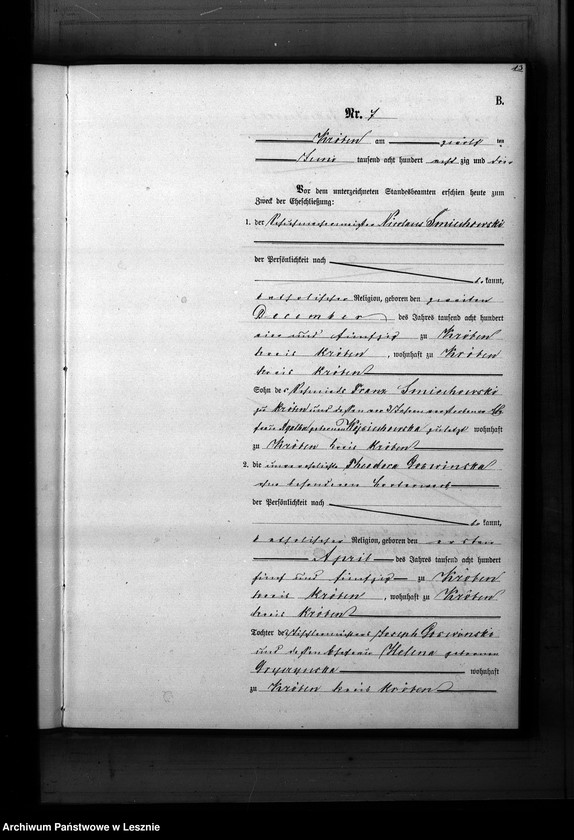 13
B.
Nr. 7
Kröben am zwölf ten
Juni tausend acht hundert acht zig und drei
Vor dem unterzeichneten Standesbeamten erschien heute zum
Zweck der Eheschließung:
1. der Nicolaus Smiechowski
der Persönlichkeit nach
be kannt,
katholischer Religion, geboren den zweiten
December des Jahres tausend acht hundert
ein und fünfzig zu Kröben
Kreis Kröben, wohnhaft zu Kröben
Kreis Kröben
Sohn des Schmieds Franz Smiechowski
zu Kröben und dessen verstorbenen Ehe-
frau Agatha geborenen Wojciechowska zuletzt wohnhaft
zu Kröben Kreis Kröben
2. die unverehelichte Theodora Goswinska
ohne besonderen
der Persönlichkeit nach
be kannt,
katholischer Religion, geboren den ersten
April des Jahres tausend acht hundert
fünf und fünfzig zu Kröben
Kreis Kröben, wohnhaft zu Kröben
Kreis Kröben
Tochter des Joseph Goswinski
und dessen Ehefrau Helena geborenen
wohnhaft
zu Kröben Kreis Kröben
Archiwum Państwowe w Lesznie